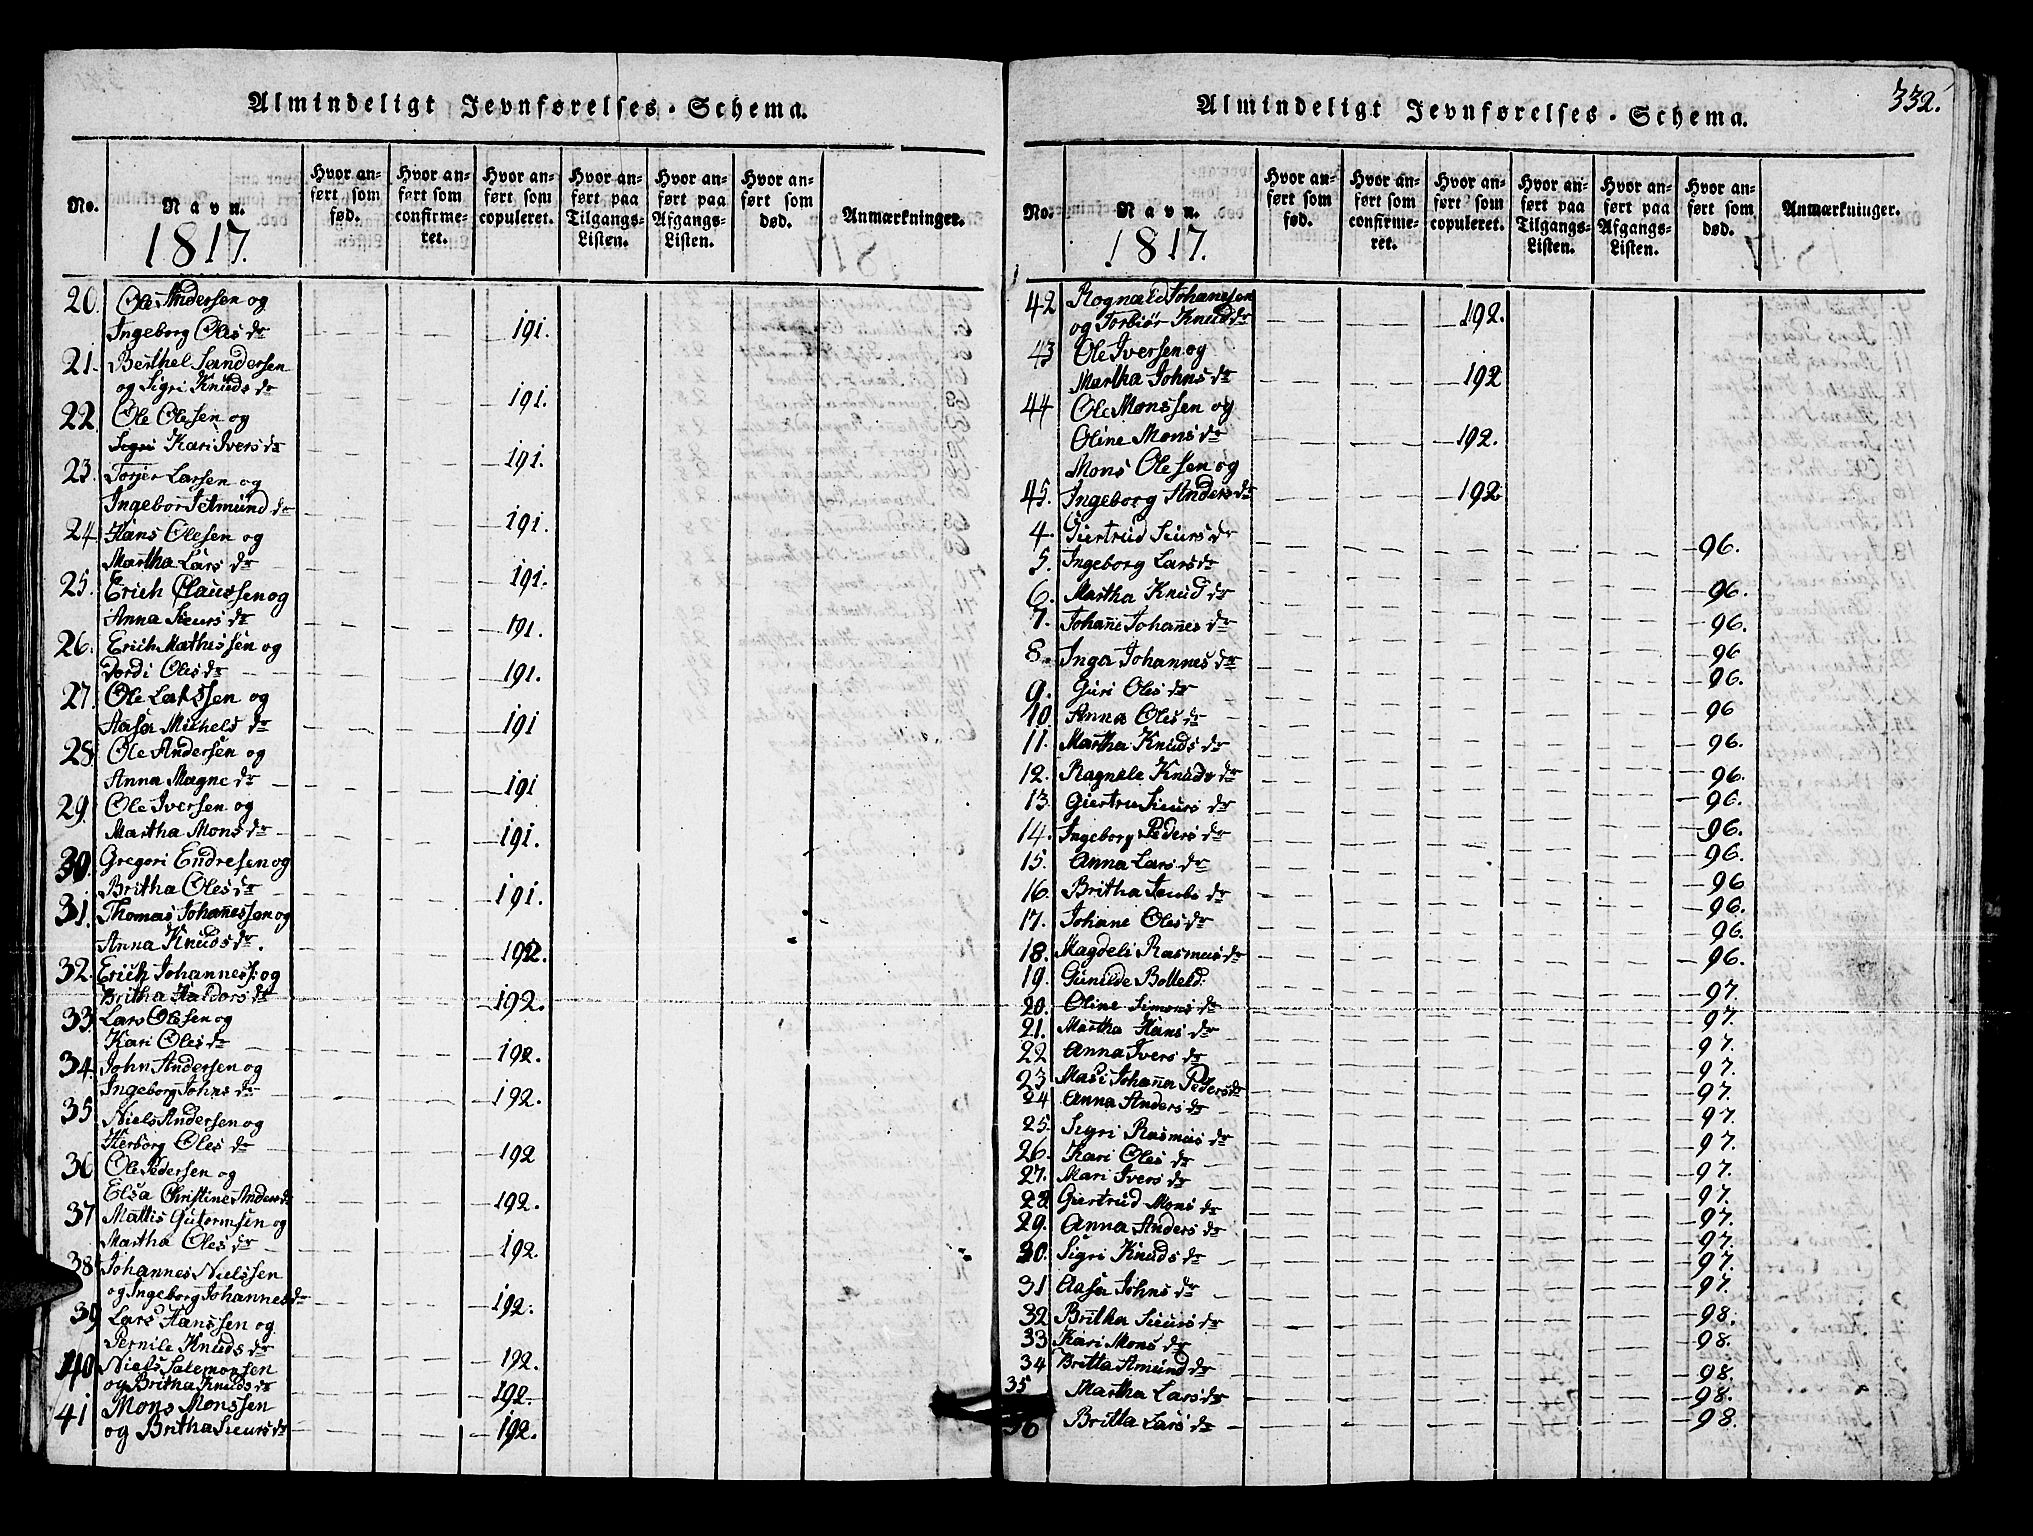 Almindeligt Jevnførelses-Schema.
No. Navn. Hvor anført som fød. Hvor anført som confirmeret. Hvor anført som copuleret. Hvor anført paa Tilgangs-Listen. Hvor anført paa Afgangs-Listen. Hvor anført som død. Anmærkninger.
1817.
20. Ole Andersen og
Ingeborg Oles dr 191.
21. Berthel Sandersen
og Sigri Knuds dr 191.
22. Ole Olesen og
Kari Ivers dr 191.
23. Torjer Larsen og
Ingebor Amund dr 191.
24. Hans Olesen og
Martha Lars dr 191.
25. Erich Claussen og
Anna Sieurs dr 191.
26. Erich Mathissen og
Jordi Oles dr 191.
27. Ole Larssen og
Aasa Michels dr 191
28. Ole Andersen og
Anna Magne dr 191
29. Ole Iversen og
Martha Mons dr 191.
30. Gregori Endresen og
Britha Oles dr 191.
31. Thomas Johanessen og
Anna Knuds dr. 192.
32. Erich Johanness: og
Britha Haldors dr 192.
33. Lars Olesen og
Kari Oles dr 192.
34. John Andersen og
Ingeborg Johns dr 192.
35. Niels Andersen og
Herborg Oles dr 192
36. Ole Pedersen og
Elsa Christine Anders dr 192.
37. Mattis Gutormsen og
Martha Oles dr 192.
38. Johannes Nielssen
og Ingeborg Johannes dr 192.
39. Lars Hanssen og
Pernile Knuds dr 192.
40. Niels Salemonsen
og Britha Knuds dr 192.
41 Mons Monssen
og Britha Sieurs dr 192.
332.
Almindeligt Jevnførelses-Schema.
No. Navn. Hvor anført som fød. Hvor anført som confirmeret. Hvor anført som copuleret. Hvor anført paa Tilgangs-Listen. Hvor anført paa Afgangs-Listen. Hvor anført som død. Anmærkninger.
1817.
42 Rognald Johanesen
og Torbiør Knud dr 192.
43 Ole Iversen og
Martha Johns dr 192
44 Ole Monssen og
Oline Mons dr 192.
Mons Olesen og
45. Ingeborg Anders dr 192
4. Giertrud Sieurs dr 96.
5. Ingeborg Lars dr 96.
6. Martha Knud dr 96.
7. Johane Johanes dr 96
8. Inga Johannes dr 96.
9. Guri Oles dr 96
10. Anna Oles dr 96.
11. Martha Knuds dr 96.
12. Ragnele Knuds dr 96.
13. Giertru Sieurs dr 96.
14. Ingeborg Peders dr 96.
15. Anna Lars dr 96
16. Britha Jacobs dr 96.
17. Johane Oles dr 96.
18. Magdeli Rasmus dr 96.
19. Gunilde Botteld: 97.
20. Oline Simons dr 97.
21. Martha Hans dr 97.
22 Anna Ivers dr 97.
23 Masi Johanna Peders dr 97.
24 Anna Anders dr 97.
25. Sigri Rasmus dr 97.
26. Kari Oles dr 97.
27. Mari Ivers dr 97.
28 Giertrud Mons dr 97.
29. Anna Anders dr 97.
30. Sigri Knuds dr 97.
31 Aasa Johns dr 97.
32 Britha Sieurs dr 98.
33 Kari Mons dr 98.
34 Britta Amund dr 98.
35 Martha Lars dr 98.
36 Britta Lars dr 98.